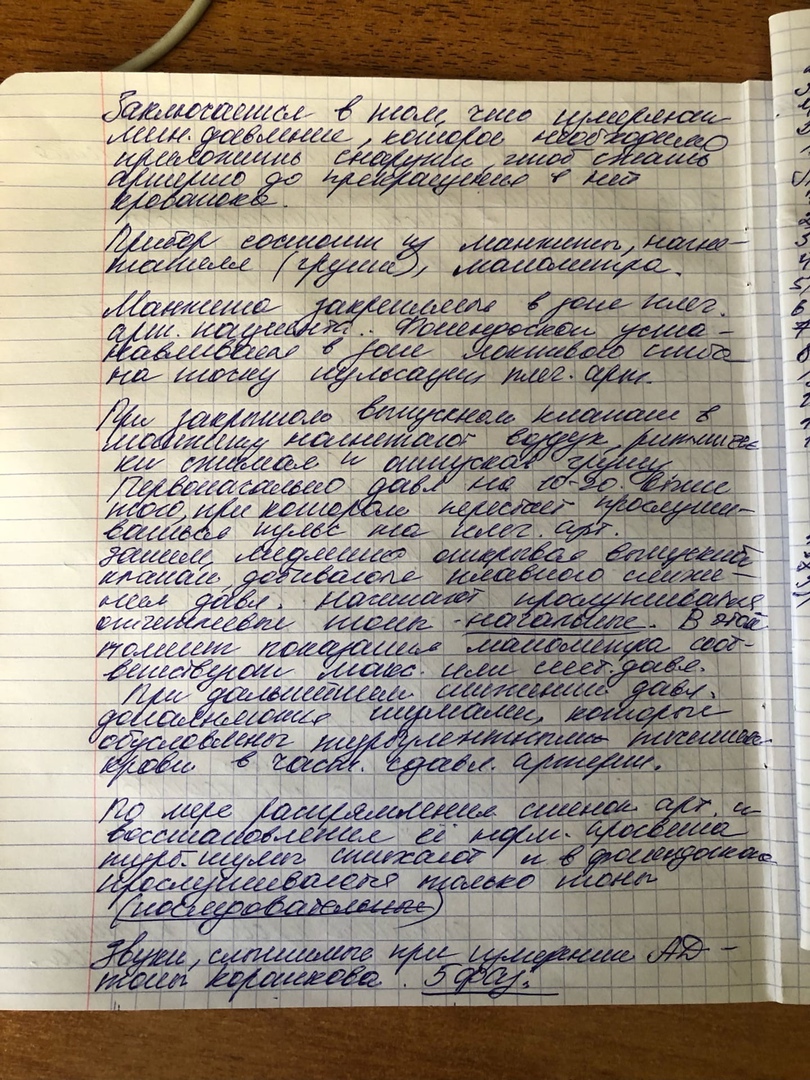 Заключается в том, что измеряют
мин. давление, которое необходимо
приложить снаружи, чтоб сжать
артерию до прекращения в ней
кровотока.
Прибор состоит из манжеты, нагне-
тателя (груши), манометра.
Манжета закрепляется в зоне плеч.
арт. пациента.. Фонендоскоп уста-
навливаем в зоне локтевого сгиба
на точку пульсации плеч. арт.
При закрытом выпускном клапане в
манжету нагнетают воздух, ритмичес
ки сжимая и отпуская грушу.
Первоначально давл на 10-20. выше
того, при котором перестаёт прослуши-
ваться пульс на плеч. арт.
Затем, медленно открывая выпускной
клапан, добиваются плавного сниже-
ния давл. Начинают прослушиваться
отчетливые тоны - начальные. В этой
момент показания манометра соот-
ветствуют макс. или сист. давл.
При дальнейшем снижении давл.
дополн. шумами, которые
обусловлены турбулентными течением
крови в част. сдавл. артерии.
По мере распрямления стенок арт. и
восстановления её норм. просвета
турб. шумы стихают и в фонендоскопе
прослушиваются только тоны
(последовательные)
Звуки, слышимые при измерении АД -
тоны Короткова. 5 фаз: